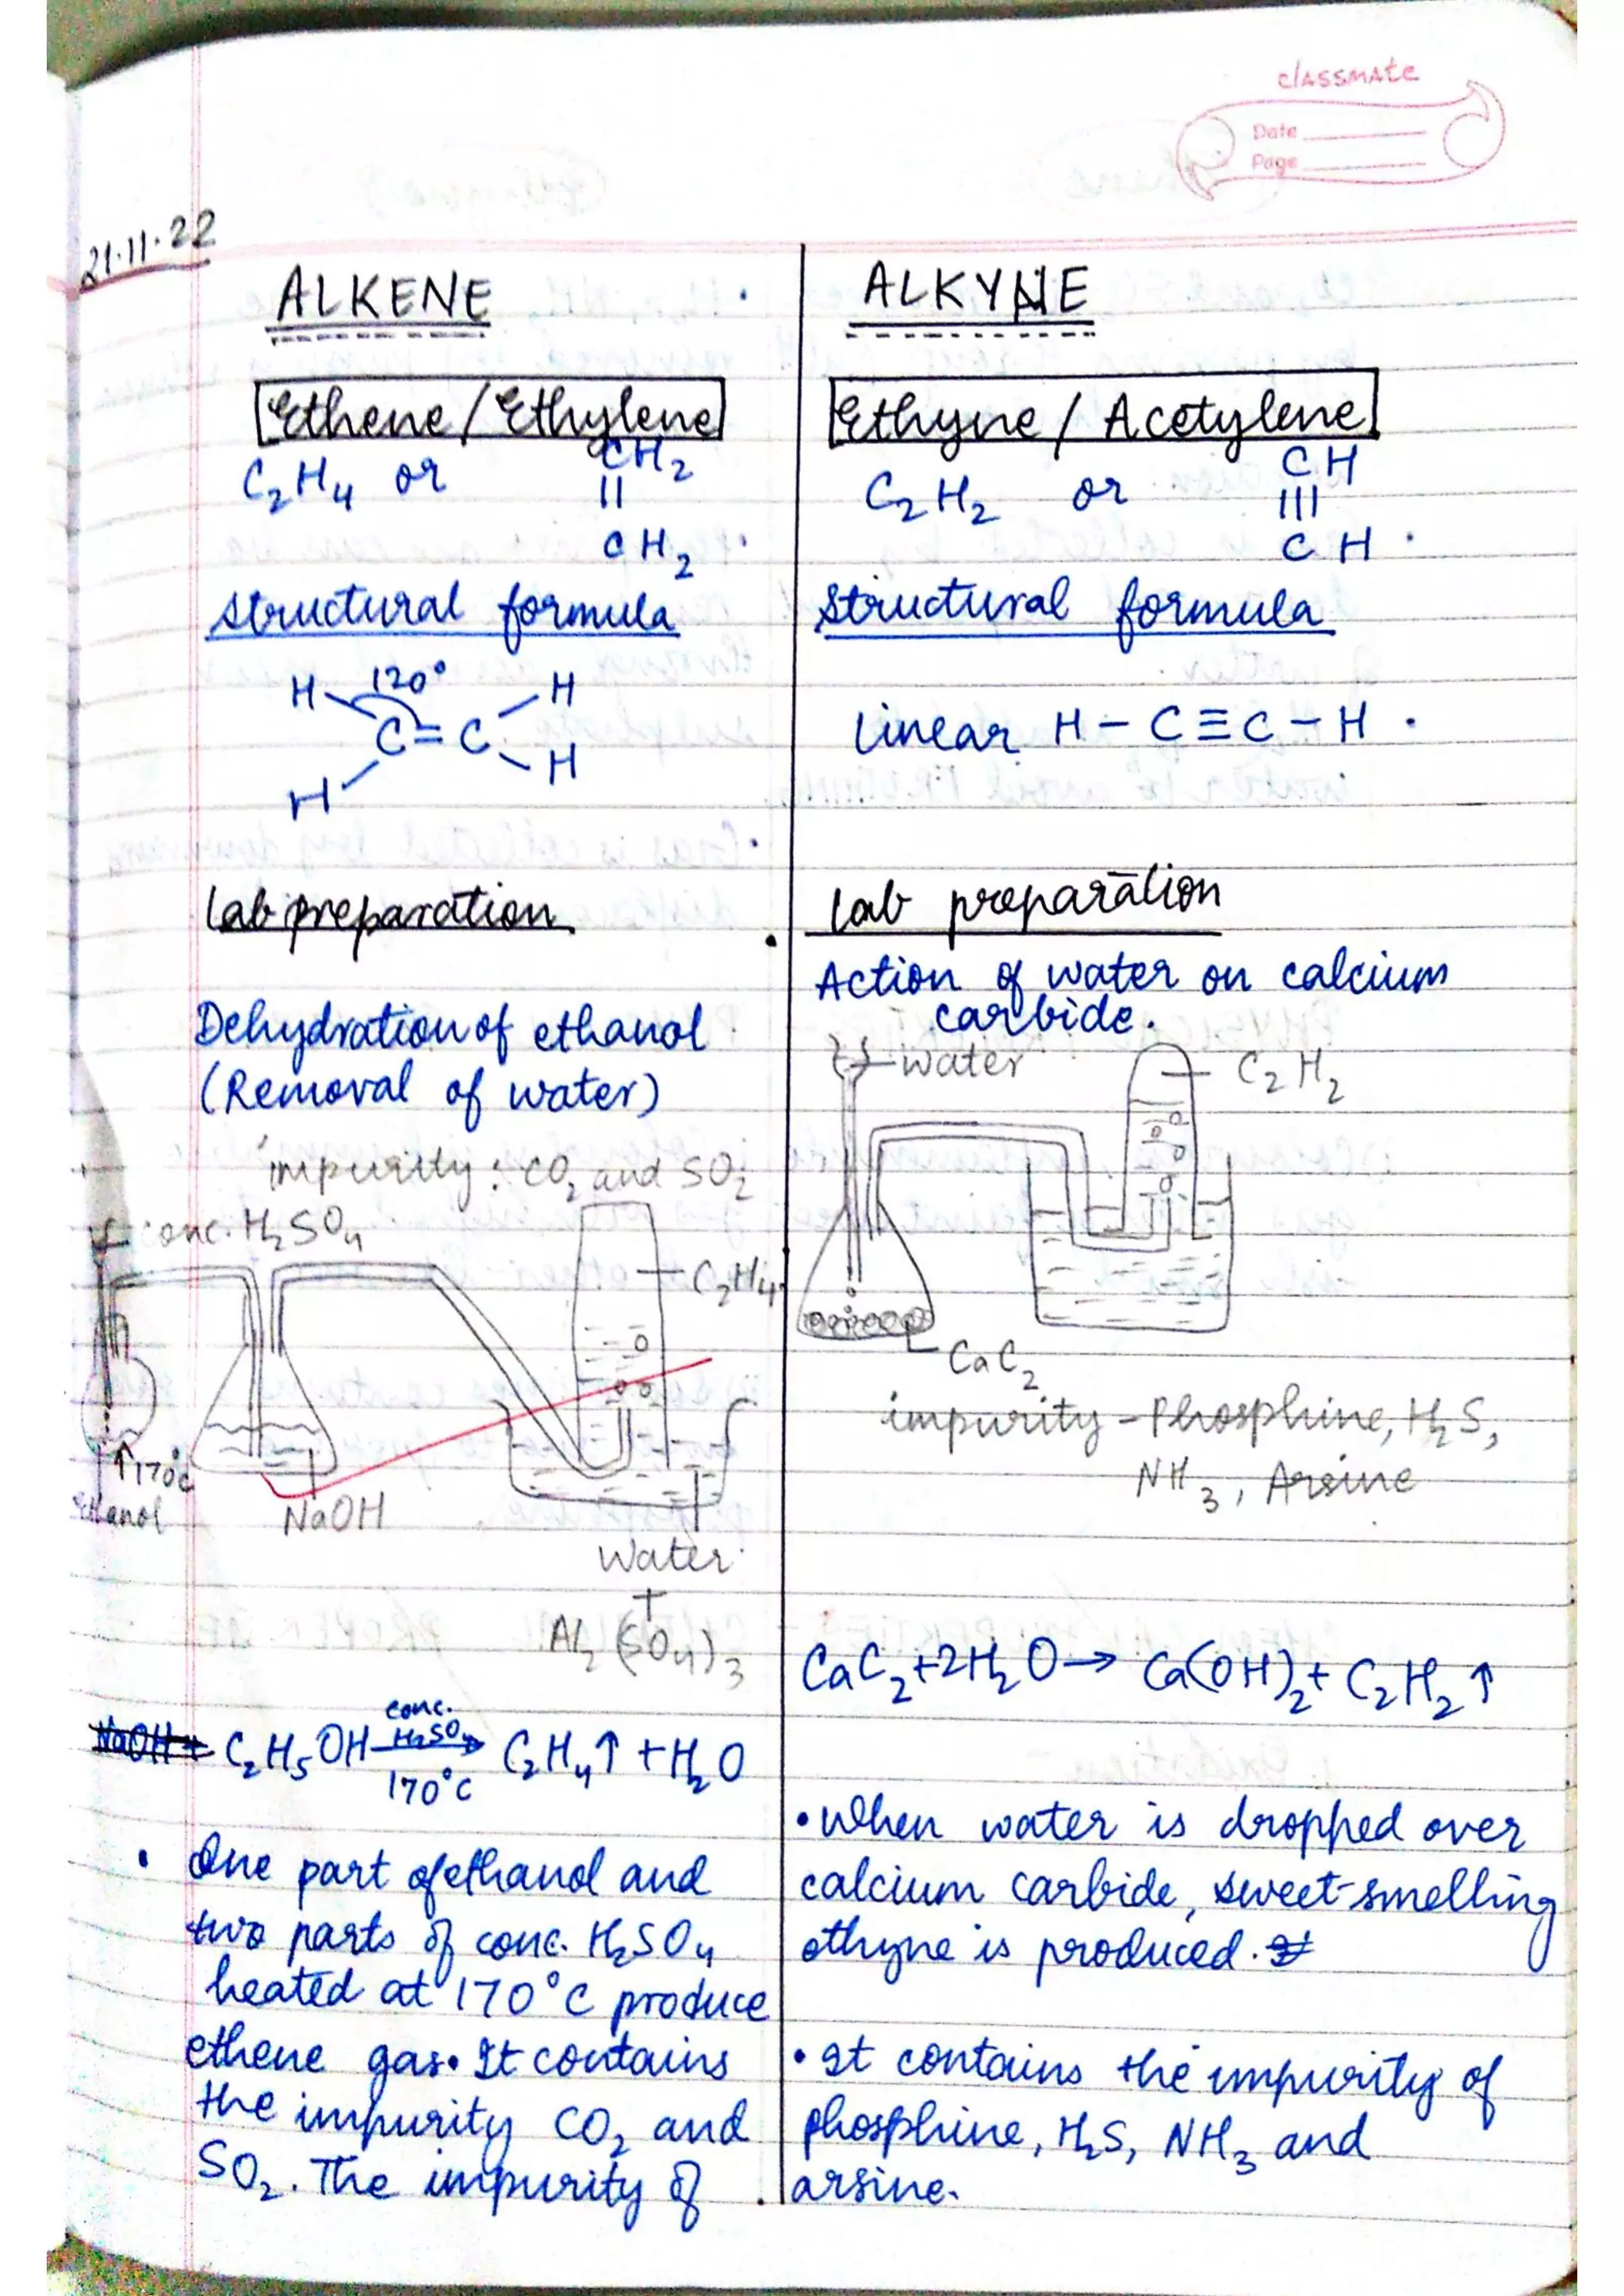 classmate
Date
Page
21.11.22
ALKENE
Ethene/Ethylene
C₂H₄ or CH₂
||
CH₂
Structural formula
H 120° H
C=C
H H
Lab preparation
Dehydration of ethanol
(Removal of water)
impurity : CO₂ and SO₂
conc. H₂SO₄
C₂H₄
↑170°C
Ethanol
NaOH
Water
+
Al₂(SO₄)₃
C₂H₅OH conc. H₂SO₄ → 170°C C₂H₄↑ + H₂O
• One part of ethanol and
two parts of conc. H₂SO₄
heated at 170°C produce
ethene gas. It contains
the impurity CO₂ and
SO₂. The impurity of
ALKYNE
Ethyne / Acetylene
C₂H₂ or CH
|||
CH
Structural formula
Linear H – C ≡ C – H
Lab preparation
Action of water on calcium
carbide.
water
C₂H₂
CaC₂
impurity – Phosphine, H₂S,
NH₃, Arsine
CaC₂+2H₂O → Ca(OH)₂+ C₂H₂↑
• When water is dropped over
calcium carbide, sweet-smelling
ethyne is produced.
• It contains the impurity of
phosphine, H₂S, NH₃ and
arsine.